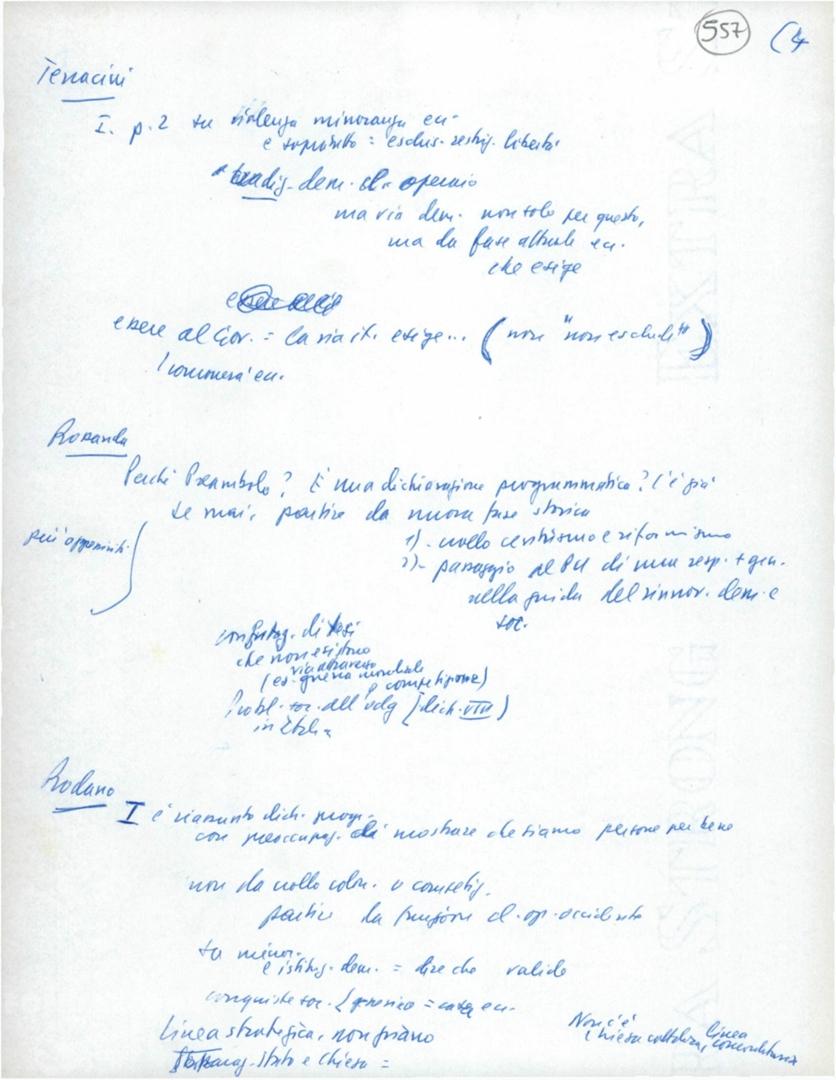 557 (4
Terracini
I. p. 2 su violenza minoranza ecc.
e soprattto = esclus. restriz. libertà
tradiz. dem. cl. operaio
ma via dem. non solo per questo,
ma da fase attuale ecc.
che esige
essere al Gov. = la via it. esige... (non "non esclude")
ecc.
Rossanda
Perché Preambolo? È una dichiarazione programmatica? C'è già
se mai, partire da nuova fase storica
1)- crollo centrismo e riformismo
più oppement.
2)- passaggio al PCI di una resp. + gen.
nella guida del rinnov. dem. e
soc.
confutaz. di tesi
che non esistono
via attraverso
(es. guerra mondiale
competizione)
Probl. soc. all'odg (dich. VIII)
in Italia
Rodano
I è riassunto dich. progr.
con preoccupaz. di mostrare che siamo persone per bene
non da crollo colon. o
partire da funzione cl. op. occidente
su minor.
e istituz. dem. = dire che valide
conquiste soc. = ecc.
Linea strategica, non
Non c'è linea
Chiesa cattolica,
Stato e Chiesa =